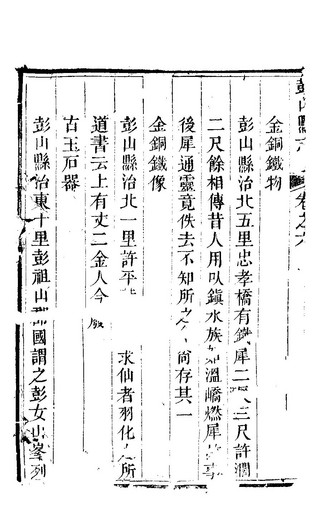 彭山縣志 卷之六
金銅鐵物
彭山縣治北五里忠孝橋有鐵犀二長三尺許濶
二尺餘相傳昔人用以鎮水族如溫嶠燃犀故事
後犀通靈竟佚去不知所之今尚存其一
金銅鐵像
彭山縣治北一里許平 求仙者羽化之所
道書云上有丈二金人今 廢
古玉石器
彭山縣治東十里彭祖山 國謂之彭女山峯列